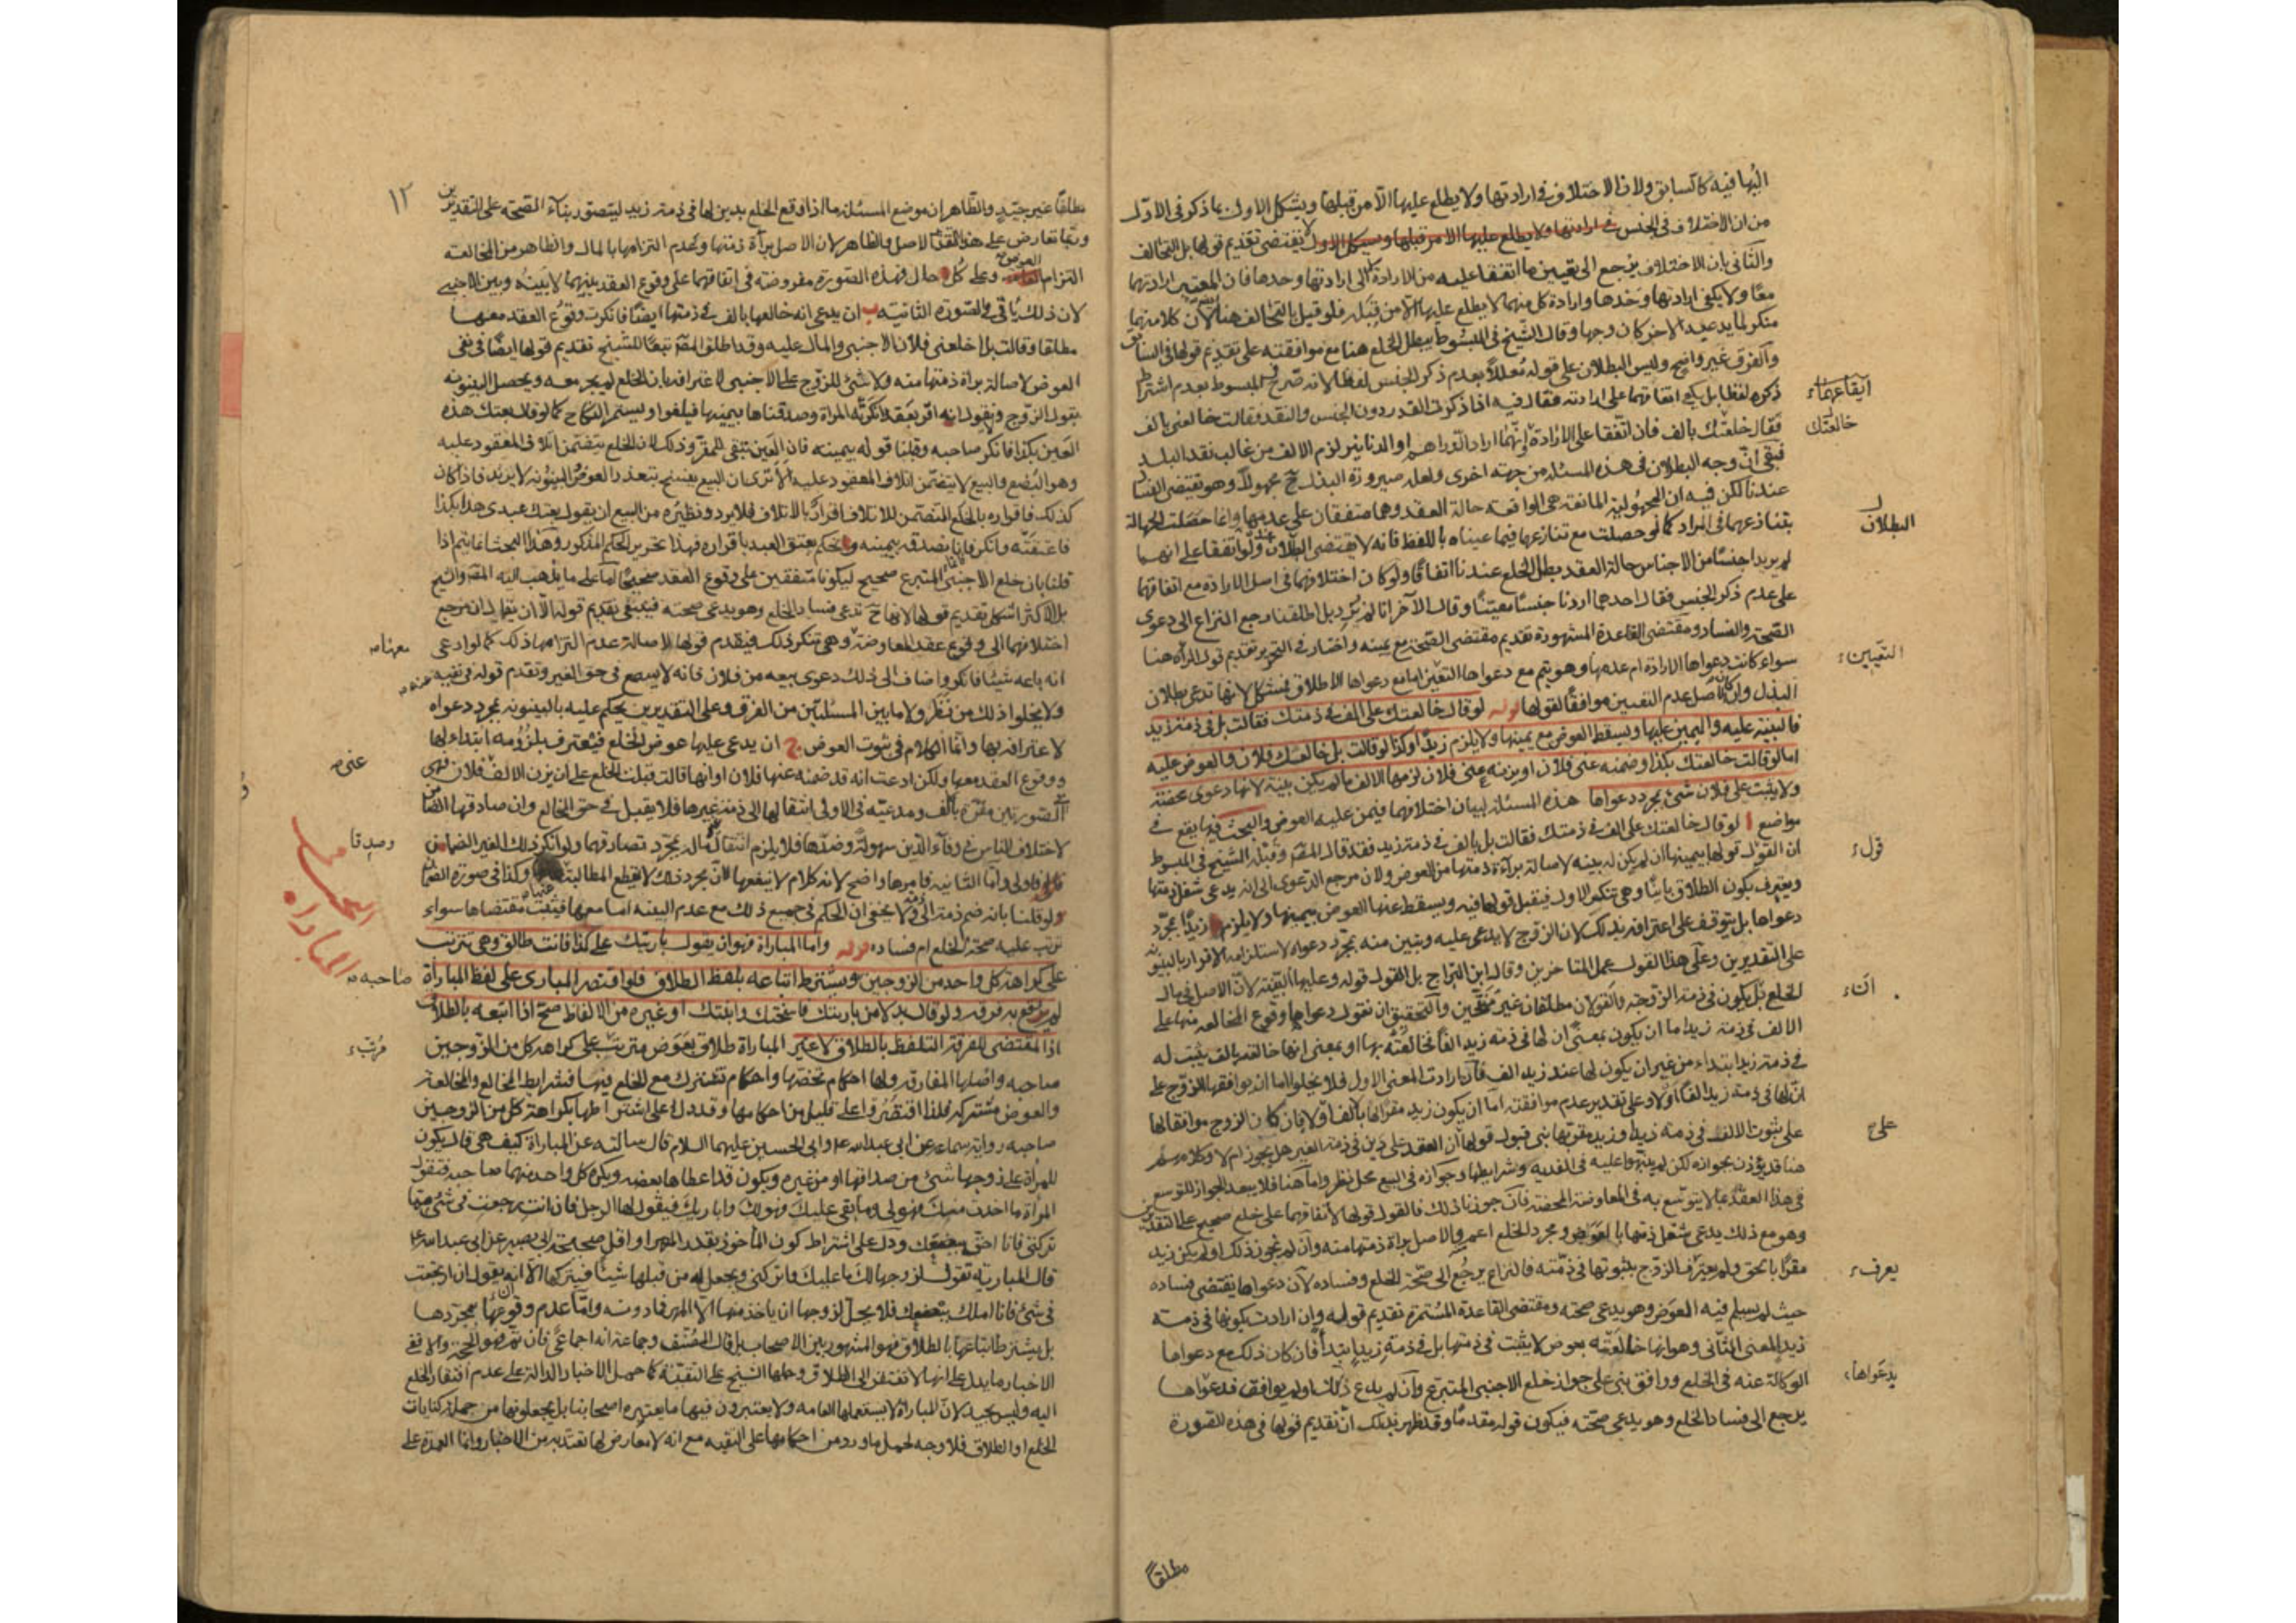 اليها فيه كالسابق ولان الاختلاف في ارادتها ولا يطلع عليها الا من قبلها ويشكل الاول بما ذكر في الاول
من ان الاختلاف في الجنس لا يقتضي تقديم قولها بل التحالف
والثاني بان الاختلاف يرجع الى تعيين ما اتفقا عليه من الارادة لا الى ارادتها وحدها فان المعتبر ارادتهما
معا ولا يكفي ارادتها وحدها وارادة كل منهما لا يطلع عليها الا من قبله فلو قيل بالتحالف هنا لان كلا منهما
منكر لما يدعيه الاخر كان وجها وقال الشيخ في المبسوط يبطل الخلع هنا مع موافقته على تقديم قولها في السابق
والفرق غير واضح وليس البطلان على قوله معللا بعدم ذكر الجنس لفظا لانه صرح في المبسوط بعدم اشتراط
ذكره لفظا بل يكفي اتفاقهما على ارادته فقال فيه اذا ذكرت القدر دون الجنس والنقد فقالت خالعني بالف
فقال خلعتك بالف فان اتفقا على الارادة وانهما ارادا الدراهم او الدنانير لزم الالف من غالب نقد البلد
فبقى ان وجه البطلان في هذه المسئلة من جهة اخرى ولعله صيرورة البذل ح مجهولا وهو يقتضي الفساد
عندنا لكن فيه ان المجهولية المانعة هي الواقعة حالة العقد وهما متفقان على عدمها وانما حصلت الجهالة
بتنازعهما في المراد كما لو حصلت مع تنازعهما فيما عيناه باللفظ فانه لا يقتضي البطلان ولو اتفقا على انهما
لم يريدا جنسا من الاجناس حالة العقد بطل الخلع عندنا اتفاقا ولو كان اختلافهما في اصل الارادة مع اتفاقهما
على عدم ذكر الجنس فقال احدهما اردنا جنسا معينا وقال الآخر انا لم نرد بل اطلقنا رجع النزاع الى دعوى
الصحة والفساد ومقتضى القاعدة المشهورة تقديم مقتضى الصحة مع يمينه واختار في التحرير تقديم قول المرأة هنا
سواء كانت دعواها الارادة ام عدمها وهو يتم مع دعواها التعين اما مع دعواها الاطلاق فمشكل لانها تدعي بطلان
البذل وان كان اصل عدم التعيين موافقا لقولها قوله لو قال خالعتك على الف في ذمتك فقالت بل في ذمة زيد
فالبينة عليه واليمين عليها ويسقط العوض مع يمينها ولا يلزم زيدا وكذا لو قالت بل خالعك فلان والعوض عليه
اما لو قالت خالعتك بكذا وضمنه عني فلان او يزنه عني فلان لزمها الالف ما لم يكن بينة لانها دعوى محضة
ولا يثبت على فلان شئ بمجرد دعواها هذه المسئلة لبيان اختلافهما فيمن عليه العوض والبحث فيها يقع في
مواضع ا لو قال خالعتك على الف في ذمتك فقالت بل بالف في ذمة زيد فقد قال المص وقبله الشيخ في المبسوط
ان القول قولها بيمينها ان لم يكن له بينه لاصالة براءة ذمتها من العوض ولان مرجع الدعوى الى انه يدعى شغل ذمتها
ويعترف بكون الطلاق باينا وهي تنكر الاول فيقبل قولها فيه ويسقط عنها العوض بيمينها ولا يلزم زيدا بمجرد
دعواها بل يتوقف على اعترافه بذلك لان الزوج لا يدعى عليه وتبين منه بمجرد دعواه لاستلزامه الاقرار بالبينونة
على التقديرين وعلى هذا القول عمل المتاخرين وقال ابن البراج بل القول قوله وعليها البينة لان الاصل في مال
الخلع ان يكون في ذمة الزوجة والقولان مطلقان غير منقحين والتحقيق ان نقول دعواها وقوع المخالعة منها على
الالف في ذمة زيد اما ان يكون بمعنى ان لها في ذمة زيد الفا فخالعته بها او بمعنى انها خالعته بالف يثبت له
في ذمة زيد ابتداء من غير ان يكون لها عند زيد الف فان ارادت المعنى الاول فلا يخلوا اما ان يوافقها الزوج على
ان لها في ذمة زيد الفا اولا وعلى تقدير عدم موافقته اما ان يكون زيد مقرا لها بالف اولا فان كان الزوج موافقا لها
على ثبوت الالف في ذمة زيد او زيد مقر بها بني قبول قولها ان العقد على دين في ذمة الغير هل يجوز ام لا وكلامهم
هنا قد يؤذن بجوازه لكن لم ينبهوا عليه في الفدية وشرايطها وجوازه في البيع محل نظر واما هنا فلا يبعد الجواز للتوسع
في هذا العقد بما لا يتوسع به في المعاوضة المحضة فان جوزنا ذلك فالقول قولها لاتفاقهما على خلع صحيح على التقديرين
وهو مع ذلك يدعى شغل ذمتها بالعوض ومجرد الخلع اعم والاصل براة ذمتها منه وان لم نجوز ذلك او لم يكن زيد
مقرا بالحق ولم يعترف الزوج بثبوتها في ذمته فالنزاع يرجع الى صحة الخلع وفساده لان دعواها يقتضي فساده
حيث لم يسلم فيه العوض وهو يدعي صحته ومقتضى القاعدة المستمرة تقديم قوله وان ارادت بكونها في ذمة
زيد المعنى الثاني وهو انها خالعته بعوض لا يثبت في ذمتها بل في ذمة زيد ابتداء فان كان ذلك مع دعواها
الوكالة عنه في الخلع ووافق بني على جواز خلع الاجنبي المتبرع وان لم يدع ذلك او لم يوافق فدعواها
يرجع الى فساد الخلع وهو يدعي صحته فيكون قوله مقدما وقد ظهر بذلك ان تقديم قولها في هذه الصورة
ايقاعهما
خالعتك
البطلان
التعيين
قول
ان
على
يعرف
يدعواها
مطلقا
١٢
مطلقا غير جيد والظاهر ان موضع المسئلة ما اذا وقع الخلع بدين لها في ذمة زيد ليتصور بناء الصحة على التقديرين
وربما تعارض على هذا التقدير الاصل والظاهر لان الاصل براءة ذمتها وعدم التزامها بالمال والظاهر من المخالعة
التزام العوض وعلى كل حال فهذه الصورة مفروضة في اتفاقهما على وقوع العقد بينهما لا بينه وبين الاجنبي
لان ذلك ياتي في الصورة الثانية ب ان يدعى انه خالعها بالف في ذمتها ايضا فانكرت وقوع العقد معها
مطلقا وقالت بل اختلعني فلان الاجنبي والمال عليه وقد اطلق المص تبعا للشيخ تقديم قولها ايضا في نفى
العوض لاصالة براة ذمتها منه ولا شئ للزوج على الاجنبي لاعترافه بان الخلع لم يجر معه ويحصل البينونة
بقول الزوج
العين بكذا فانكر صاحبه وقبلنا قوله بيمينه فان العين تبقى للمقر وذلك لان الخلع يتضمن اتلاف المعقود عليه
وهو البضع والبيع لا يتضمن اتلاف المعقود عليه الا ترى ان البيع يفسخ بتعذر العوض والبينونة لا يرتد فاذا كان
كذلك فاقراره بالخلع المتضمن للاتلاف اقرار بالاتلاف فلا يرد ونظيره من البيع ان يقول بعتك عبدي هذا بكذا
فاعتقته وانكر فانا نصدقه بيمينه ونحكم بعتق العبد باقراره فهذا تحرير الحكم المذكور وهذا البحث انما يتم اذا
قلنا بان خلع الاجنبي المتبرع صحيح ليكونا متفقين على وقوع العقد صحيحا اما على ما يذهب اليه المص والشيخ
بل الاكثر اشكل تقديم قولها لانها ح تدعى فساد الخلع وهو يدعى صحته فينبغي تقديم قوله الا ان يقال ان مرجع
اختلافهما الى وقوع عقد المعاوضة وهي تنكر ذلك فيقدم قولها لاصالة عدم التزامها ذلك كما لو ادعى
انه باعه شيئا فانكر واضاف الى ذلك دعوى بيعه من فلان فانه لا يسمع في حق الغير ونقدم قوله في نفيه
ولا يخلوا ذلك من نظر ولا ما بين المسئلتين من الفرق وعلى التقديرين يحكم عليه بالبينونة بمجرد دعواه
لاعترافه بها وانما الكلام في ثبوت العوض ج ان يدعى عليها عوض الخلع فيعترف بلزومه ابتداء لها
ووقوع العقد معها ولكن ادعت انه قد ضمنه عنها فلان او انها قالت قبلت الخلع على ان يزن الالف فلان فهي في
الصورتين مقرة بالف ومدعية في الاولى انتقالها الى ذمة غيرها فلا يقبل في حق الخالع وان صادقها الضامن
لاختلاف الناس في وفاء الدين سهولة وضدها فلا يلزم انتقال ماله بمجرد تصادقهما ولو انكر ذلك الغير الضمان
فاولى واما الثانية فامرها واضح لانه كلام لا ينفعها لان مجرد ذلك لا يقطع المطالبة وكذا في صورة الضمان
ولو قلنا بانه ضم ذمة الى ذمة ولا يخفى ان الحكم في جميع ذلك مع عدم البينة اما معها فيثبت مقتضاها سواء
ترتب عليه صحة الخلع ام فساده قوله واما المباراة فهو ان يقول بارئتك على كذا فانت طالق وهي تترتب
على كراهة كل واحد من الزوجين ويشترط اتباعه بلفظ الطلاق فلو اقتصر المبارى على لفظ المباراة
لم يقع به فرقة ولو قال بدلا من بارئتك فاسختك او ابنتك او غيره من الالفاظ صح اذا اتبعه بالطلاق
اذ المقتضى للفرقة التلفظ بالطلاق لا غير المباراة طلاق بعوض مترتب على كراهة كل من الزوجين
صاحبه واصلها المفارقة ولها احكام تخصها واحكام تشترك مع الخلع فيها فشرايط الخالع والمخالعة
والعوض مشتركة فلذا اقتصروا على قليل من احكامها وقد دل على اشتراطها بكراهة كل من الزوجين
صاحبه رواية سماعة عن ابي عبد الله وابي الحسن عليهما السلام قال سالته عن المباراة كيف هي قال يكون
للمرأة على زوجها شئ من صداقها او من غيره ويكون قد اعطاها بعضه ويكره كل واحد منهما صاحبه فتقول
المرأة ما اخذت منك فهو لي وما بقى عليك فهو لك وابارئك فيقول لها الرجل فان انت رجعت في شئ مما
تركتي فانا احق ببضعك ودل على اشتراط كون المأخوذ بقدر المهر او اقل صحيحة ابي بصير عن ابي عبد الله
قال المبارية تقول لزوجها لك ما عليك واتركني ويجعل له من قبلها شيئا فيتركها الا انه يقول ان ارتجعت
في شئ فانا املك ببضعك فلا يحل لزوجها ان ياخذ منها الا المهر فما دونه واما عدم وقوعها بمجردها
بل يشترط اتباعها بالطلاق فهو المشهور بين الاصحاب بل قال المصنف وجماعة انه اجماعي فان تم فهو الحجة والا ففي
الاخبار ما يدل على انها لا تفتقر الى الطلاق وحملها الشيخ على التقية كما حمل الاخبار الدالة على عدم افتقار الخلع
اليه وليس بجيد لان المباراة لا يستعملها العامة ولا يعتبرون فيها ما يعتبره اصحابنا بل يجعلونها من جملة كنايات
الخلع او الطلاق فلا وجه لحمل ما ورد من احكامها على التقية مع انه لا معارض لها يعتد به من الاخبار وانما العمدة على
معناه
عنى
وصدقا
المباراة
صاحبه
مرتب